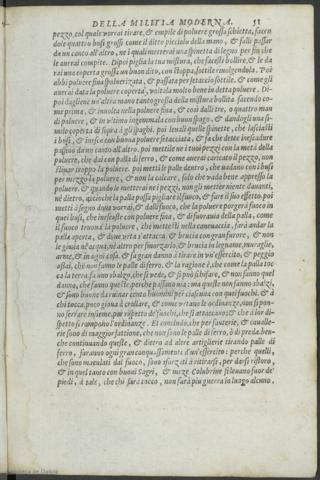 DELLA MILITIA MODERNA. 51
pezzo, col quale vorrai tirare, & empile di poluere grossa schietta, facen
dole quattro busi grossi come il ditto picciolo della mano, & falli passar
da un canto all'altro, ne i quali metterai una spinetta di legno per fin che
le aurai compite. Dipoi piglia la tua mistura, che facesti bollire, & le da
rai una coperta grossa un buon dito, con stoppa sottile riuolgendola. Poi
abbi poluere fina spoluerizata, & passata per setaccio sottile, & come gli
auerai data la poluere coperta, voltala molto bene in detta poluere. Di-
poi dagliene un'altra mano tanto grossa della mistura bollita facendo co
me prima, & inuolta nella poluere fina, & così dalli tre, o quattro man
di poluere, & in vltimo ingemmala con buon spago, & dandogli una si-
mile coperta di sopra à gli spaghi. poi lieua quelle spinette, che lasciasti
i busi, & inesca con buona poluere setacciata, & fa che dette inescadure
passino da un canto all'altro. poi mettile ne i tuoi pezzi con la metà della
poluere, che dai con palla di ferro, & come auerai caricato il pezzo, non
stiuar troppo la poluere. poi metti le palle dentro, che uadano con i busi
per mezzo la poluere, & non la calcare, solo che vada bene appresso la
poluere. & quando le metterai ne i pezzi, non gli metter niente dauanti,
nè dietro, accioche la palla possa pigliare il fuoco, & fare il suo effetto. poi
metti à segno doue vorrai, & dalli fuoco, che la poluere porgerà fuoco in
quei busi, che inescasti con poluere fina, & di fuorauia della palla, come
il fuoco trouarà la poluere, che mettesti nella camuccia, farà andar la
palla aperta, & doue vrta s'attacca, & brucia con gran furore, & non
le gioua nè acqua, nè altro per smorzarlo, & brucia in legname, muraglie,
arme, & in ogni cosa. & fa gran danno à tirare in vn'essercito, & peggio
assai, che non fanno le palle di ferro. & la ragione è, che come la palla toc-
ca la terra, fa uno sbalzo, che si vede, & si può schifare, & non fanno quel
danno, che fanno queste, perche passano via: ma queste non fanno sbalzi,
& sono buone da ruinar cento huomini per ciascuna con quei fuochi. & à
chi tocca, poco gioua à crollare, & come vrtano le ordinanze, non si pon-
no serrare insieme, pur rispetto de' fuochi, che si attaccano, & che à lor di-
spetto si rompono l'ordinanze. Et concludo, che per fanterie, & caualle-
rie sono di maggior fattione, che non sono le palle di ferro, ò di preda. ben-
che continuando queste, & dietro ad altre artiglierie tirando palle di
ferro, faranno ogni gran conquassamento d'un'essercito: perche quelli,
che sono maculati dal fuoco, sono sforzati à ritirarsi, per darsi ristoro,
& in quel tanto con buoni Sagri, & meze Colubrine si leuano fuor de'
piedi, à tale, che chi sarà tocco, non farà piu guerra in luogo alcuno.